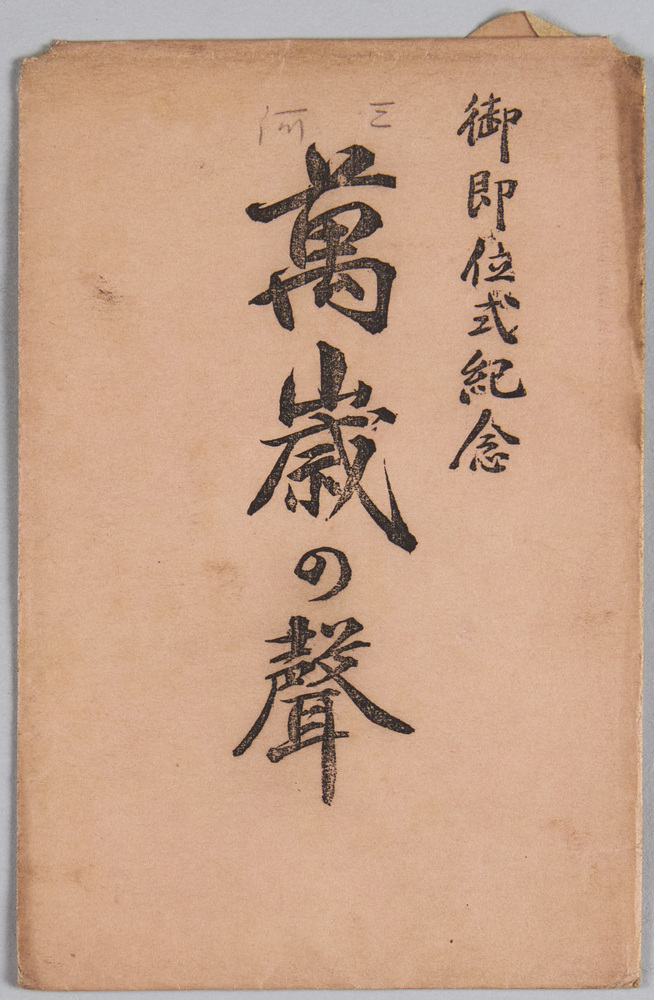 御即位式紀念
三河
萬歳の聲